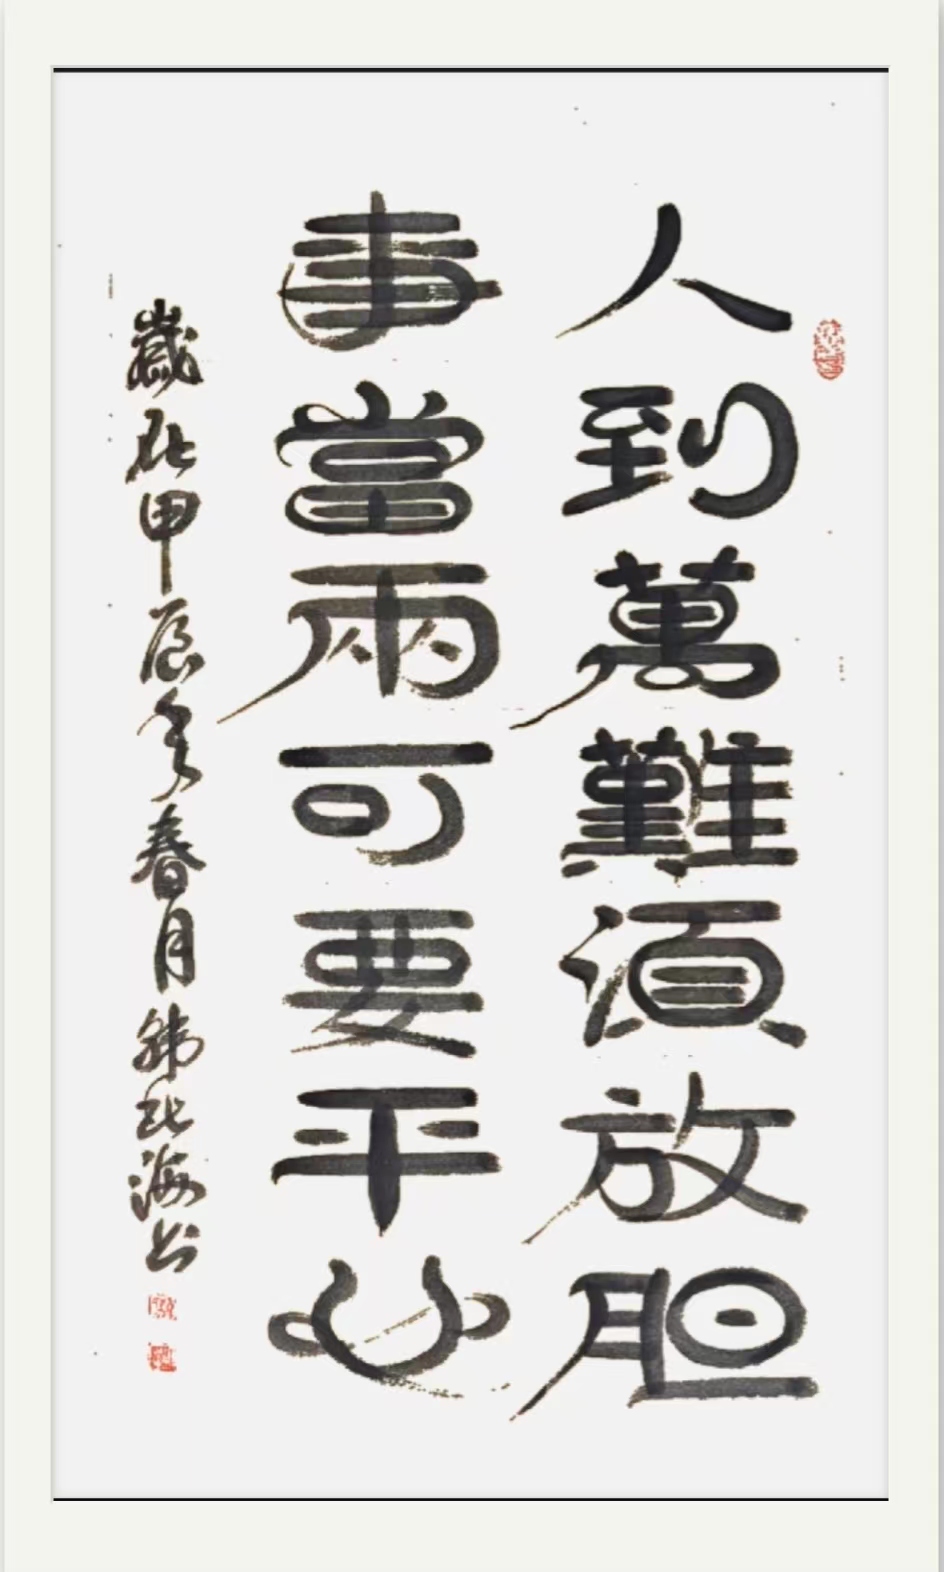 人到萬難須放胆
事當兩可要平心
歲在甲辰年春月韩北海书